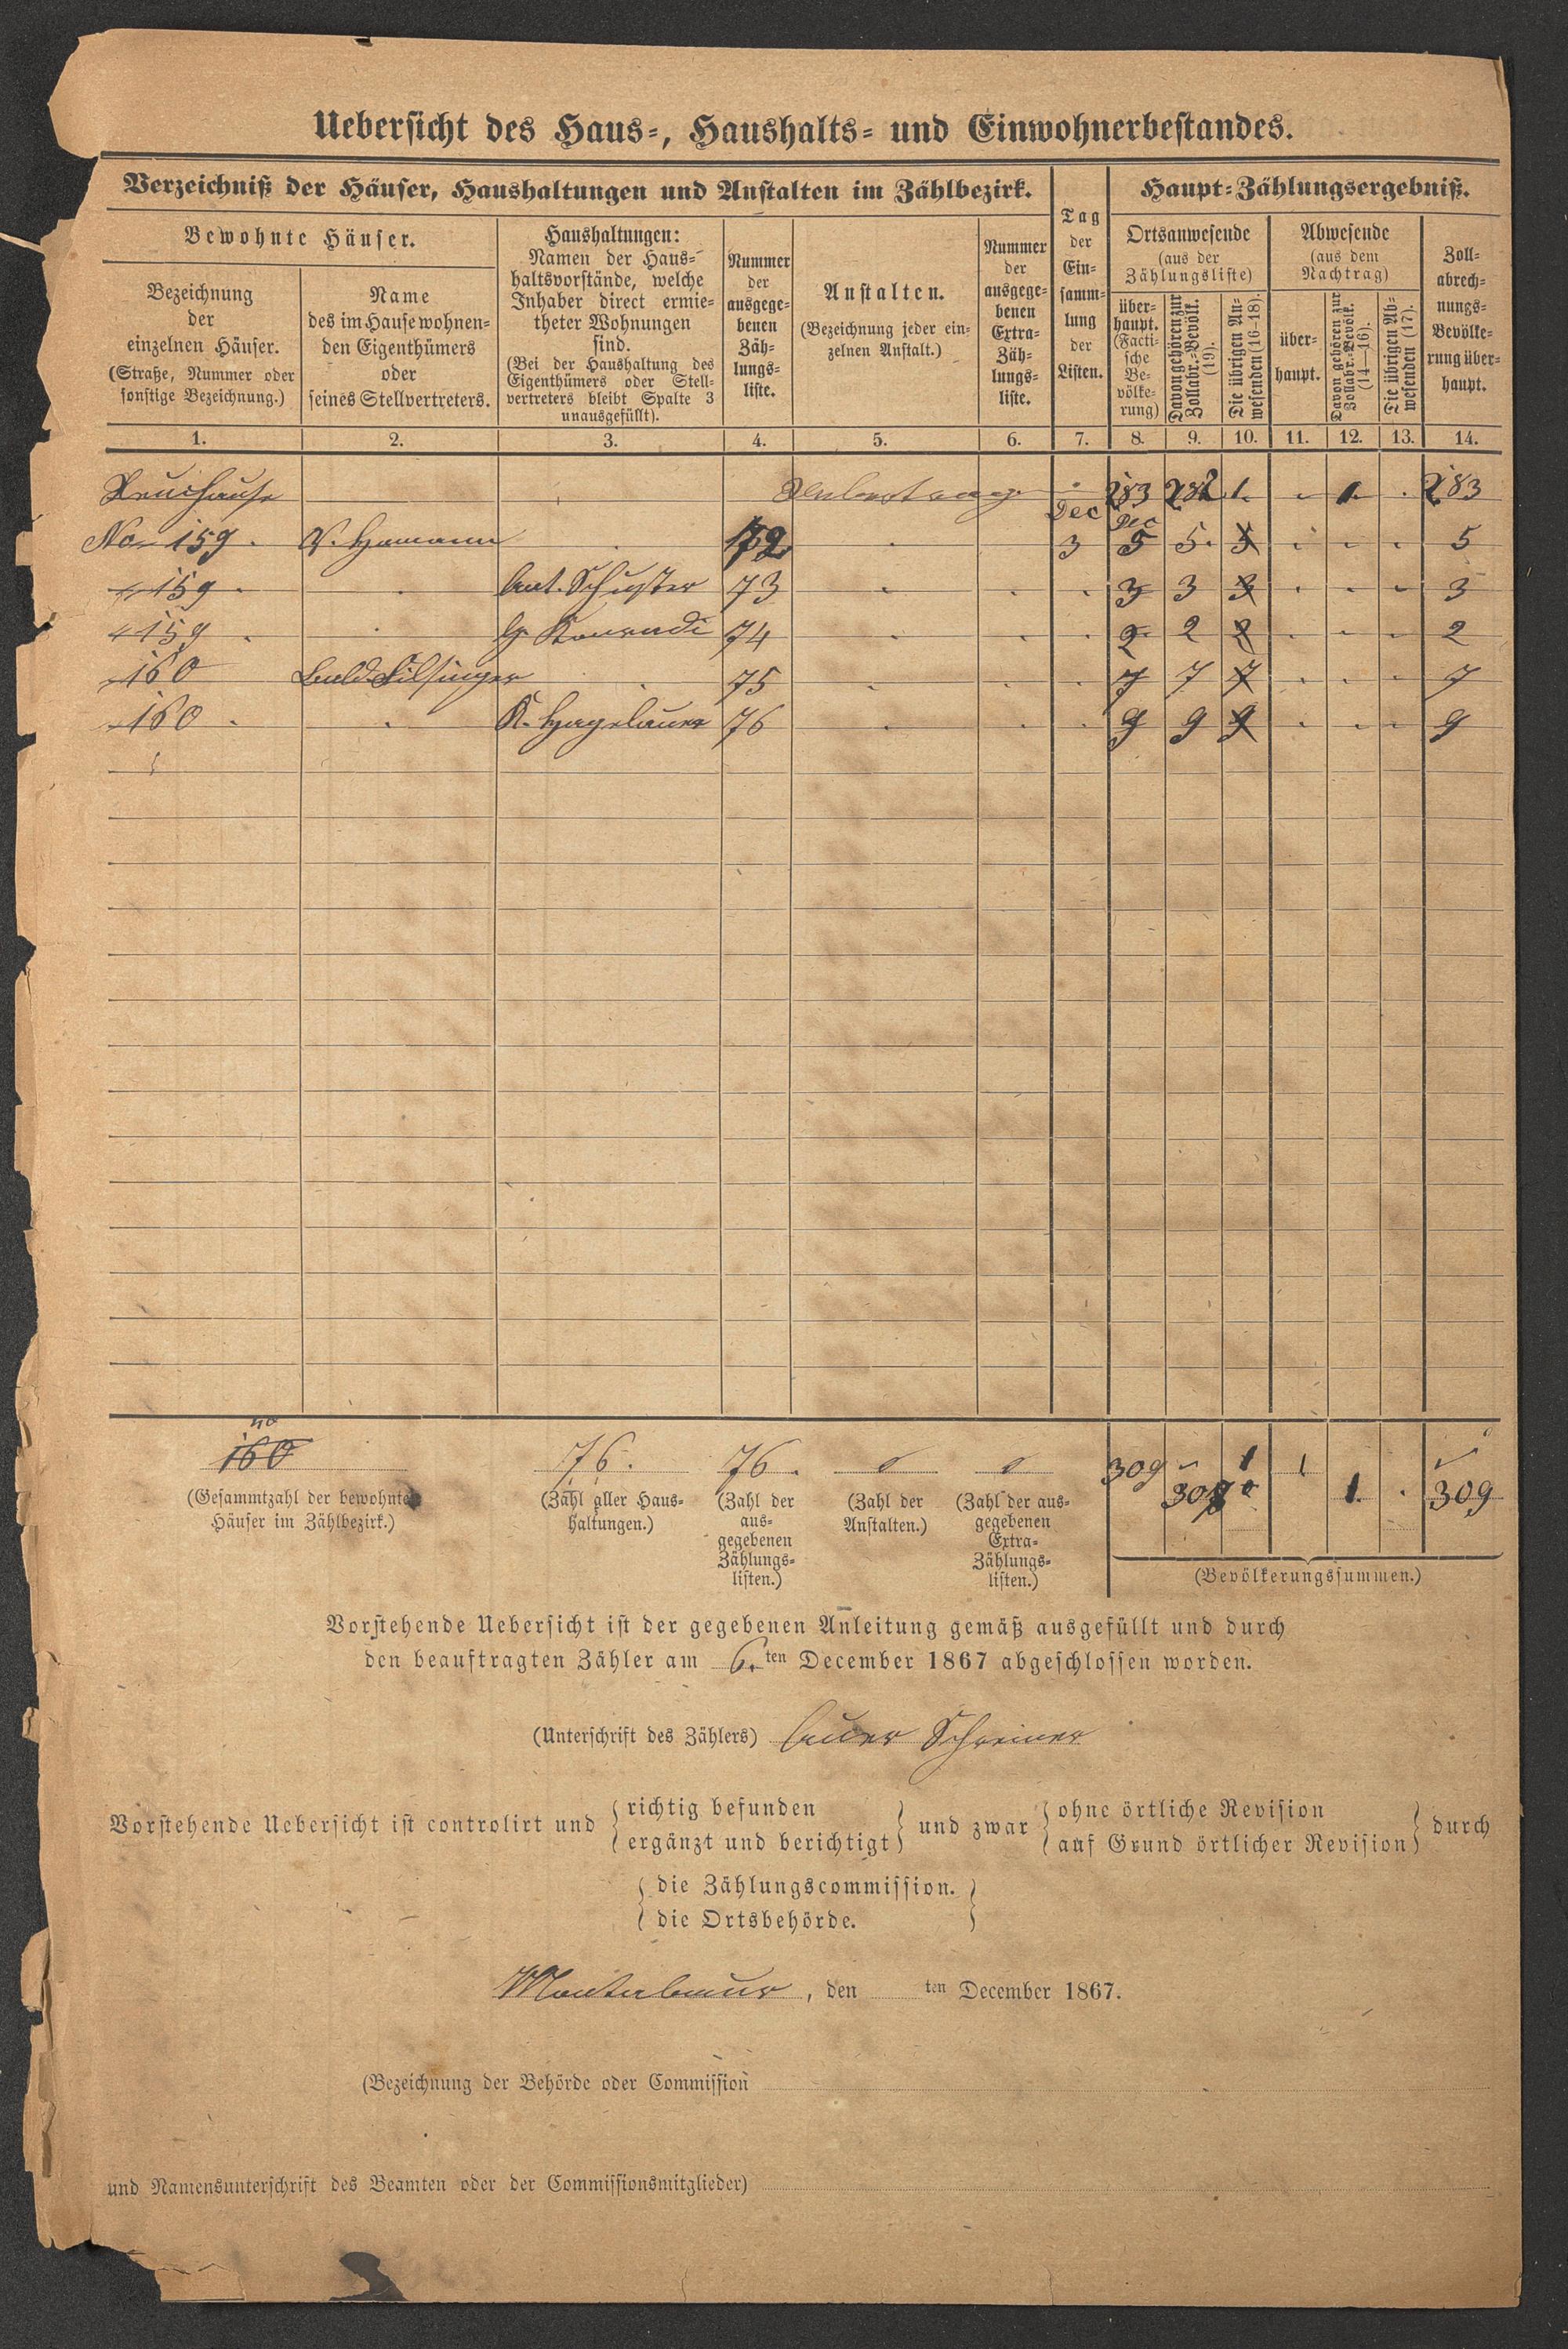 Uebersicht des Haus-, Haushalts- und Einwohnerbestandes.
Verzeichniß der Häuser, Haushaltungen und Anstalten im Zählbezirk.
Tag der Ein-
samm-
lung
der
Listen.
Haupt-Zählungsergebniß.
Bewohnte Häuser.
Bezeichnung
der
einzelnen Häuser.
(Straße, Nummer oder
sonstige Bezeichnung.)
Name
des im Hause wohnen-
den Eigenthümers
oder
seines Stellvertreters.
Haushaltungen:
Namen der Haus-
haltsvorstände, welche
Inhaber direct ermie-
theter Wohnungen
sind.
(Bei der Haushaltung des
Eigenthümers oder Stell-
vertreters bleibt Spalte 3
unausgefüllt).
Nummer
der
ausgege-
benen
Zäh-
lungs-
liste.
Anstalten.
(Bezeichnung jeder ein-
zelnen Anstalt.)
Nummer
der
ausgege-
benen
Extra-
Zäh-
lungs-
liste.
Ortsanwesende
(aus der
Zählungsliste)
über-
haupt.
(Facti-
sche
Be-
völke-
rung)
Davon gehören zur
Zollabr.-Bevölk.
(19).
Die übrigen An-
wesenden (16-18).
Abwesende
(aus dem
Nachtrag)
über-
haupt.
Davon gehören zur
Zollabr.-Bevölk.
(14-16).
Die übrigen Ab-
wesenden (17).
Zoll-
abrech-
nungs-
Bevölke-
rung über-
haupt.
1. 2. 3. 4. 5. 6. 7. 8. 9. 10. 11. 12. 13. 14.
283 282 1. 1. 283
Dec Dec
No 159. 72 3 5 5. 5 5
" 159 Ant. Schuster 73 3 3 3 3
" 159 74 2 2 2 2
" 160 75 7 7 7 7
" 160 76 9 9 9 9
160 76. 76. 0 0 309 308 1 1 1. 309
(Gesammtzahl der bewohnten
Häuser im Zählbezirk.)
(Zahl aller Haus-
haltungen.)
(Zahl der
aus-
gegebenen
Zählungs-
listen.)
(Zahl der
Anstalten.)
(Zahl der aus-
gegebenen
Extra-
Zählungs-
listen.)
(Bevölkerungssummen.)
Vorstehende Uebersicht ist der gegebenen Anleitung gemäß ausgefüllt und durch
den beauftragten Zähler am 6. ten December 1867 abgeschlossen worden.
(Unterschrift des Zählers) Schreiner
Vorstehende Uebersicht ist controlirt und { richtig befunden
ergänzt und berichtigt } und zwar { ohne örtliche Revision
auf Grund örtlicher Revision } durch
{ die Zählungscommission.
die Ortsbehörde. }
Montabaur, den ten December 1867.
(Bezeichnung der Behörde oder Commission
und Namensunterschrift des Beamten oder der Commissionsmitglieder)